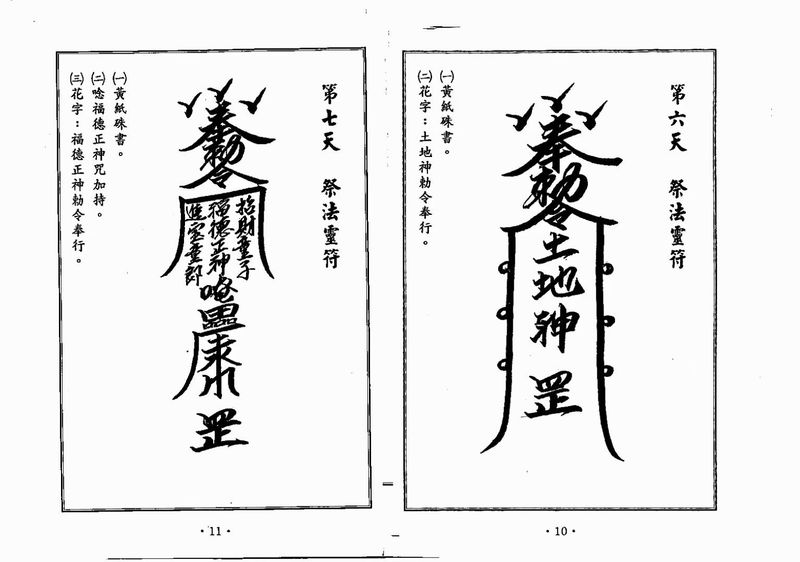 第六天　祭法靈符
㈠黃紙硃書。
㈡花字：土地神勅令奉行。
奉勅令
土地神
罡
·10·
第七天　祭法靈符
㈠黃紙硃書。
㈡唸福德正神咒加持。
㈢花字：福德正神勅令奉行。
奉勅令
招財童子
福德正神
進寶童郎
罡
·11·